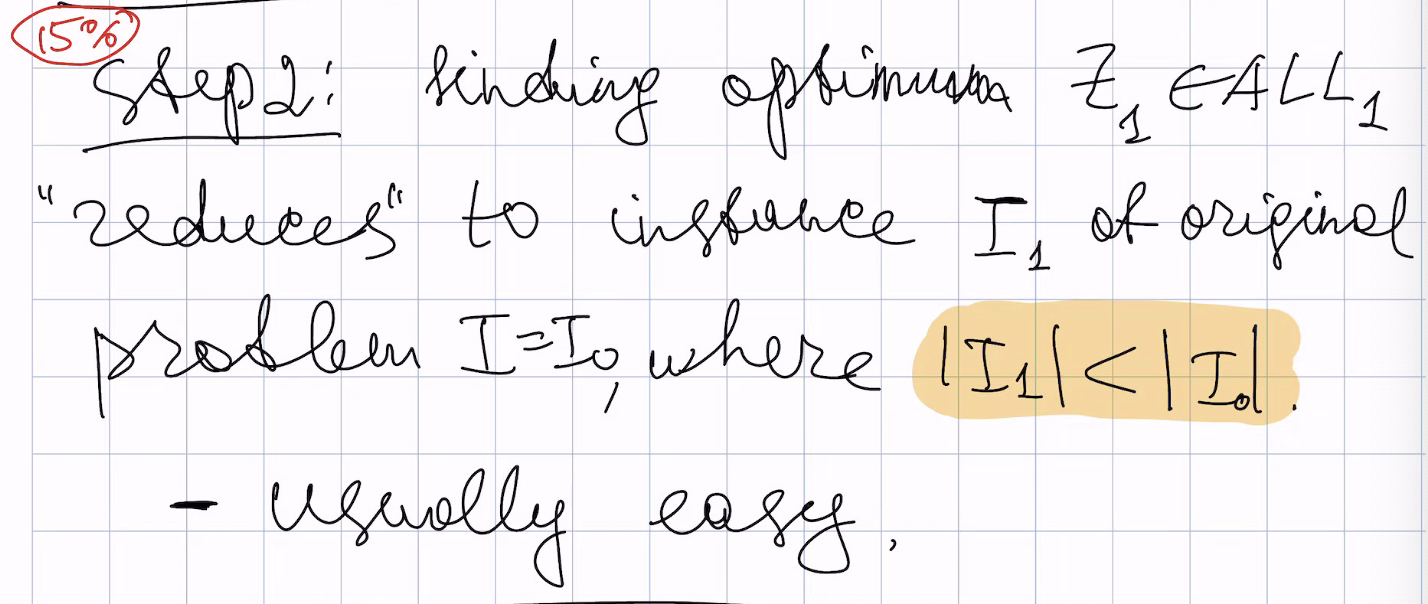 15%
Step 2: finding optimum Z₁ ∈ ALL₁
"reduces" to instance I₁ of original
problem I=I₀, where |I₁| < |I₀|.
- usually easy.